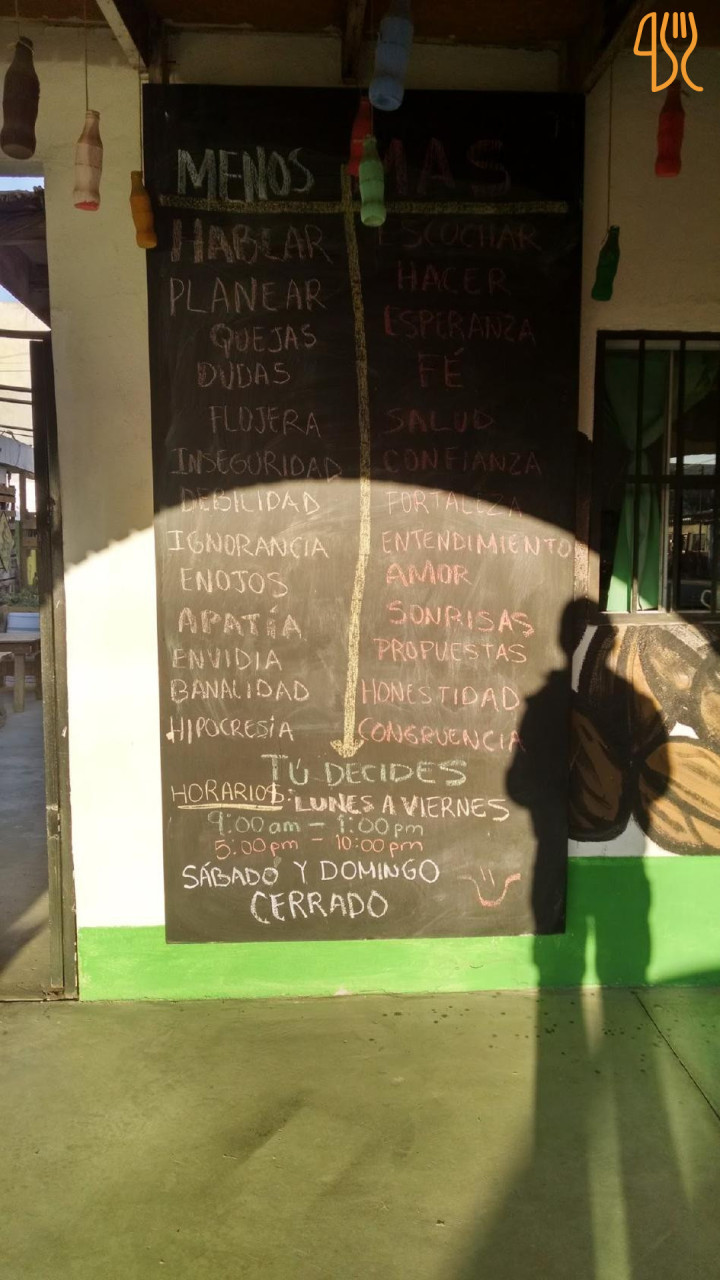 MENOS MAS
HABLAR ESCUCHAR
PLANEAR HACER
QUEJAS ESPERANZA
DUDAS FÉ
FLOJERA SALUD
INSEGURIDAD CONFIANZA
DEBILIDAD FORTALEZA
IGNORANCIA ENTENDIMIENTO
ENOJOS AMOR
APATÍA SONRISAS
ENVIDIA PROPUESTAS
BANALIDAD HONESTIDAD
HIPOCRESÍA CONGRUENCIA
TÚ DECIDES
HORARIOS: LUNES A VIERNES
9:00 am - 1:00 pm
5:00 pm - 10:00 pm
SÁBADO Y DOMINGO
CERRADO